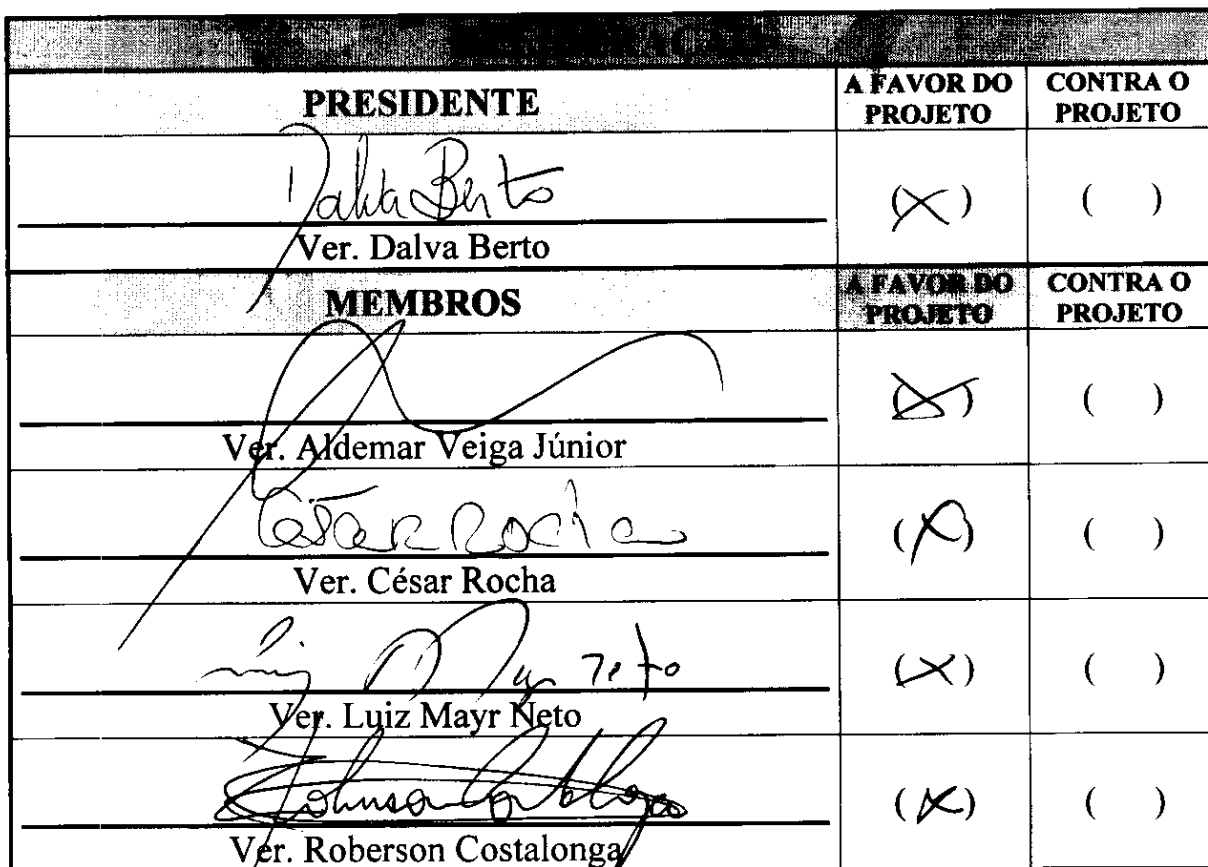 PRESIDENTE A FAVOR DO PROJETO CONTRA O PROJETO
Dalva Berto (X) ( )
Ver. Dalva Berto
MEMBROS A FAVOR DO PROJETO CONTRA O PROJETO
(X) ( )
Ver. Aldemar Veiga Júnior
César Rocha (X) ( )
Ver. César Rocha
(X) ( )
Ver. Luiz Mayr Neto
(X) ( )
Ver. Roberson Costalonga